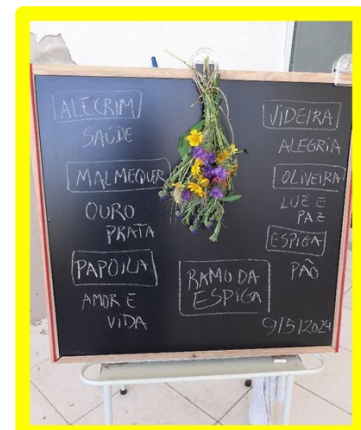 ALECRIM
SAÚDE
MALMEQUER
OURO
PRATA
PAPOILA
AMOR E
VIDA
RAMO DA
ESPIGA
VIDEIRA
ALEGRIA
OLIVEIRA
LUZ E
PAZ
ESPIGA
PÃO
9/5/2024